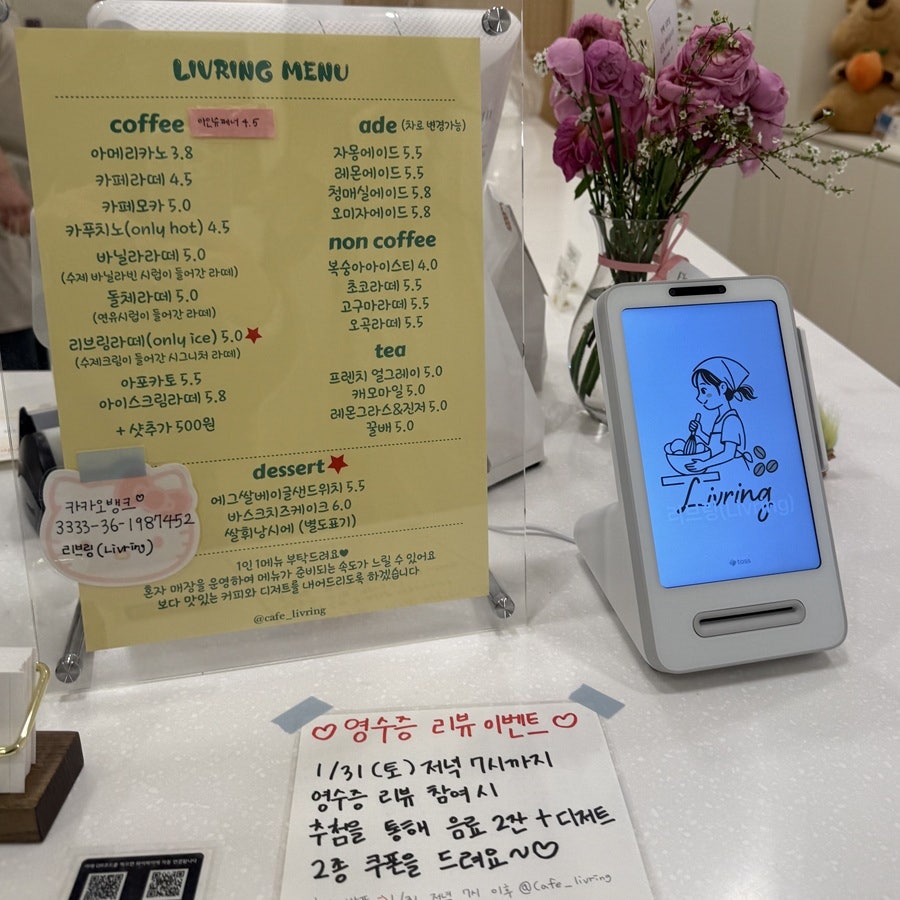 LIVRING MENU
coffee
아인슈페너 4.5
아메리카노 3.8
카페라떼 4.5
카페모카 5.0
카푸치노(only hot) 4.5
바닐라라떼 5.0
(수제 바닐라빈 시럽이 들어간 라떼)
돌체라떼 5.0
(연유시럽이 들어간 라떼)
리브링라떼(only ice) 5.0
(수제크림이 들어간 시그니처 라떼)
아포카토 5.5
아이스크림라떼 5.8
+ 샷추가 500원
ade (차로 변경가능)
자몽에이드 5.5
레몬에이드 5.5
청매실에이드 5.8
오미자에이드 5.8
non coffee
복숭아아이스티 4.0
초코라떼 5.5
고구마라떼 5.5
오곡라떼 5.5
tea
프렌치 얼그레이 5.0
캐모마일 5.0
레몬그라스&진저 5.0
꿀배 5.0
dessert
에그쌀베이글샌드위치 5.5
바스크치즈케이크 6.0
쌀휘낭시에 (별도표기)
1인 1메뉴 부탁드려요♥
혼자 매장을 운영하여 메뉴가 준비되는 속도가 느릴 수 있어요
보다 맛있는 커피와 디저트를 내어드리도록 하겠습니다
@cafe_livring
카카오뱅크♡
3333-36-1987452
리브링 (Livring)
Livring
리브링(Livring)
toss
♡영수증 리뷰 이벤트♡
1/31 (토) 저녁 7시까지
영수증 리뷰 참여시
추첨을 통해 음료 2잔 + 디저트
2종 쿠폰을 드려요~♡
1/31 저녁 7시 이후 @cafe_livring